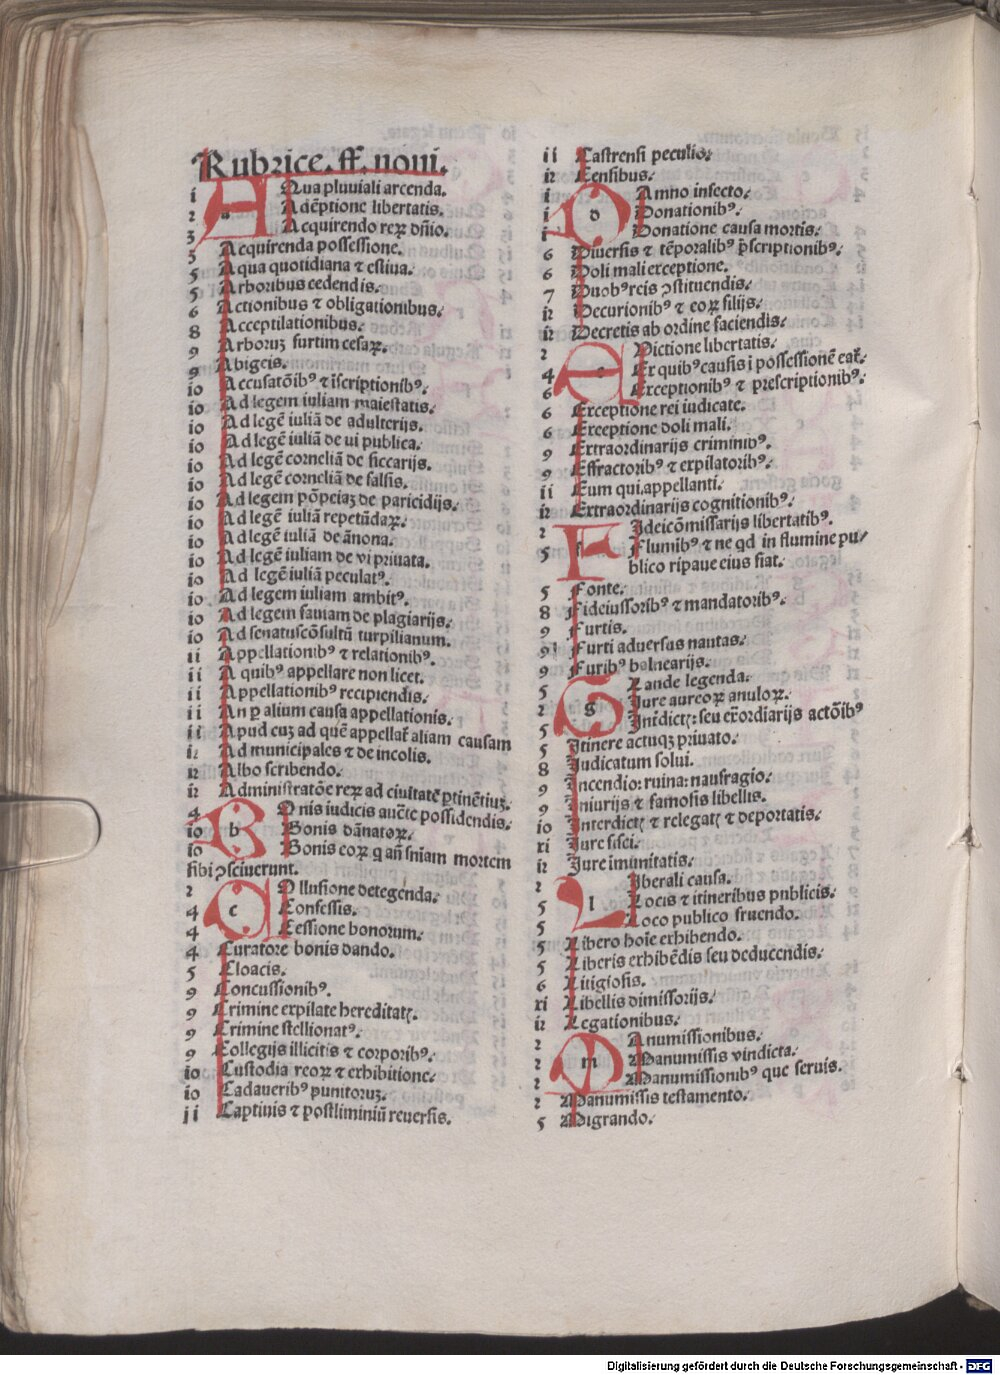 Rubrice .ff. noui.
i Aqua pluuiali arcenda.
2 Adēptione libertatis.
3 Acquirendo reꝝ dn̄io.
3 Acquirenda possessione.
5 Aqua quotidiana ⁊ estiua.
5 Arboribus cedendis.
6 Actionibus ⁊ obligationibus.
8 Acceptilationibus.
9 Arboruꝫ furtim cesaꝝ.
9 Abigeis.
io Accusatōibꝰ ⁊ īscriptionibꝰ.
io Ad legem iuliam maiestatis.
io Ad legē iuliā de adulterijs.
io Ad legē iuliā de ui publica.
io Ad legē corneliā de siccarijs.
io Ad legē corneliā de falsis.
io Ad legem pōpeiaꝫ de paricidijs.
io Ad legē iuliā repetūdaꝝ.
io Ad legē iuliā de ānona.
io Ad legē iuliam de vi priuata.
io Ad legē iuliā peculatꝰ.
io Ad legem iuliam ambitꝰ.
io Ad legem fauiam de plagiarijs.
io Ad senatuscōsultū turpilianum.
ii Appellationibꝰ ⁊ relationibꝰ.
ii A quibꝰ appellare non licet.
ii Appellationibꝰ recipiendis.
ii An ꝑ alium causa appellationis.
ii Apud euꝫ ad quē appellat̄ aliam causam
i2 Ad municipales ⁊ de incolis.
i2 Albo scribendo.
i2 Administratōe reꝝ ad ciuitatē ꝑtinētiuꝫ.
4 Bonis iudicis auc̄te possidendis.
io Bonis dānatoꝝ.
io Bonis eoꝝ q an̄ sn̄iam mortem
sibi ꝯsciuerunt.
2 Collusione detegenda.
4 Confessis.
4 Cessione bonorum.
4 Curatore bonis dando.
5 Cloacis.
9 Concussionibꝰ.
9 Crimine expilate hereditatꝭ.
9 Crimine stellionatꝰ.
9 Collegijs illicitis ⁊ corporibꝰ.
io Custodia reoꝝ ⁊ exhibitione.
io Cadaueribꝰ punitoruꝫ.
ii Captiuis ⁊ postliminiū reuersis.
ii Castrensi peculio.
i2 Censibus.
i Damno infecto.
i Donationibꝰ.
i Donatione causa mortis.
6 Diuersis ⁊ tēporalibꝰ p̄scriptionibꝰ.
6 Doli mali exceptione.
7 Duobꝰ reis ꝯstituendis.
i2 Decurionibꝰ ⁊ eoꝝ filijs.
i2 Decretis ab ordine faciendis.
2 Edictione libertatis.
4 Ex quibꝰ causis ī possessionē eat̄.
6 Exceptionibꝰ ⁊ prescriptionibꝰ.
6 Exceptione rei iudicate.
6 Exceptione doli mali.
9 Extraordinarijs criminibꝰ.
9 Effractoribꝰ ⁊ expilatoribꝰ.
ii Eum qui. appellanti.
i2 Extraordinarijs cognitionibꝰ.
2 Fideicōmissarijs libertatibꝰ.
5 Flumibꝰ ⁊ ne qd in flumine pu/
blico ripaue eius fiat.
5 Fonte.
8 Fideiussoribꝰ ⁊ mandatoribꝰ.
9 Furtis.
9 Furti aduersus nautas.
9 Furibꝰ balnearijs.
5 Glande legenda.
2 Iure aureoꝝ anuloꝝ.
5 Inrdictꝭ: seu exordiarijs actōibꝰ
5 Itinere actuqꝫ priuato.
8 Iudicatum solui.
9 Incendio: ruina: naufragio.
9 Iniurijs ⁊ famosis libellis.
io Interdictꝭ ⁊ relegatꝭ ⁊ deportatis.
xi Iure fisci.
i2 Iure imunitatis.
2 Liberali causa.
5 Locis ⁊ itineribus publicis.
5 Loco publico fruendo.
5 Libero hoīe exhibendo.
5 Liberis exhibēdis seu deducendis.
6 Litigiosis.
xi Libellis dimissorijs.
i2 Legationibus.
2 Manumissionibus.
2 Manumissis vindicta.
2 Manumissionibꝰ que seruis.
2 Manumissis testamento.
5 Migrando.
Digitalisierung gefördert durch die Deutsche Forschungsgemeinschaft - DFG